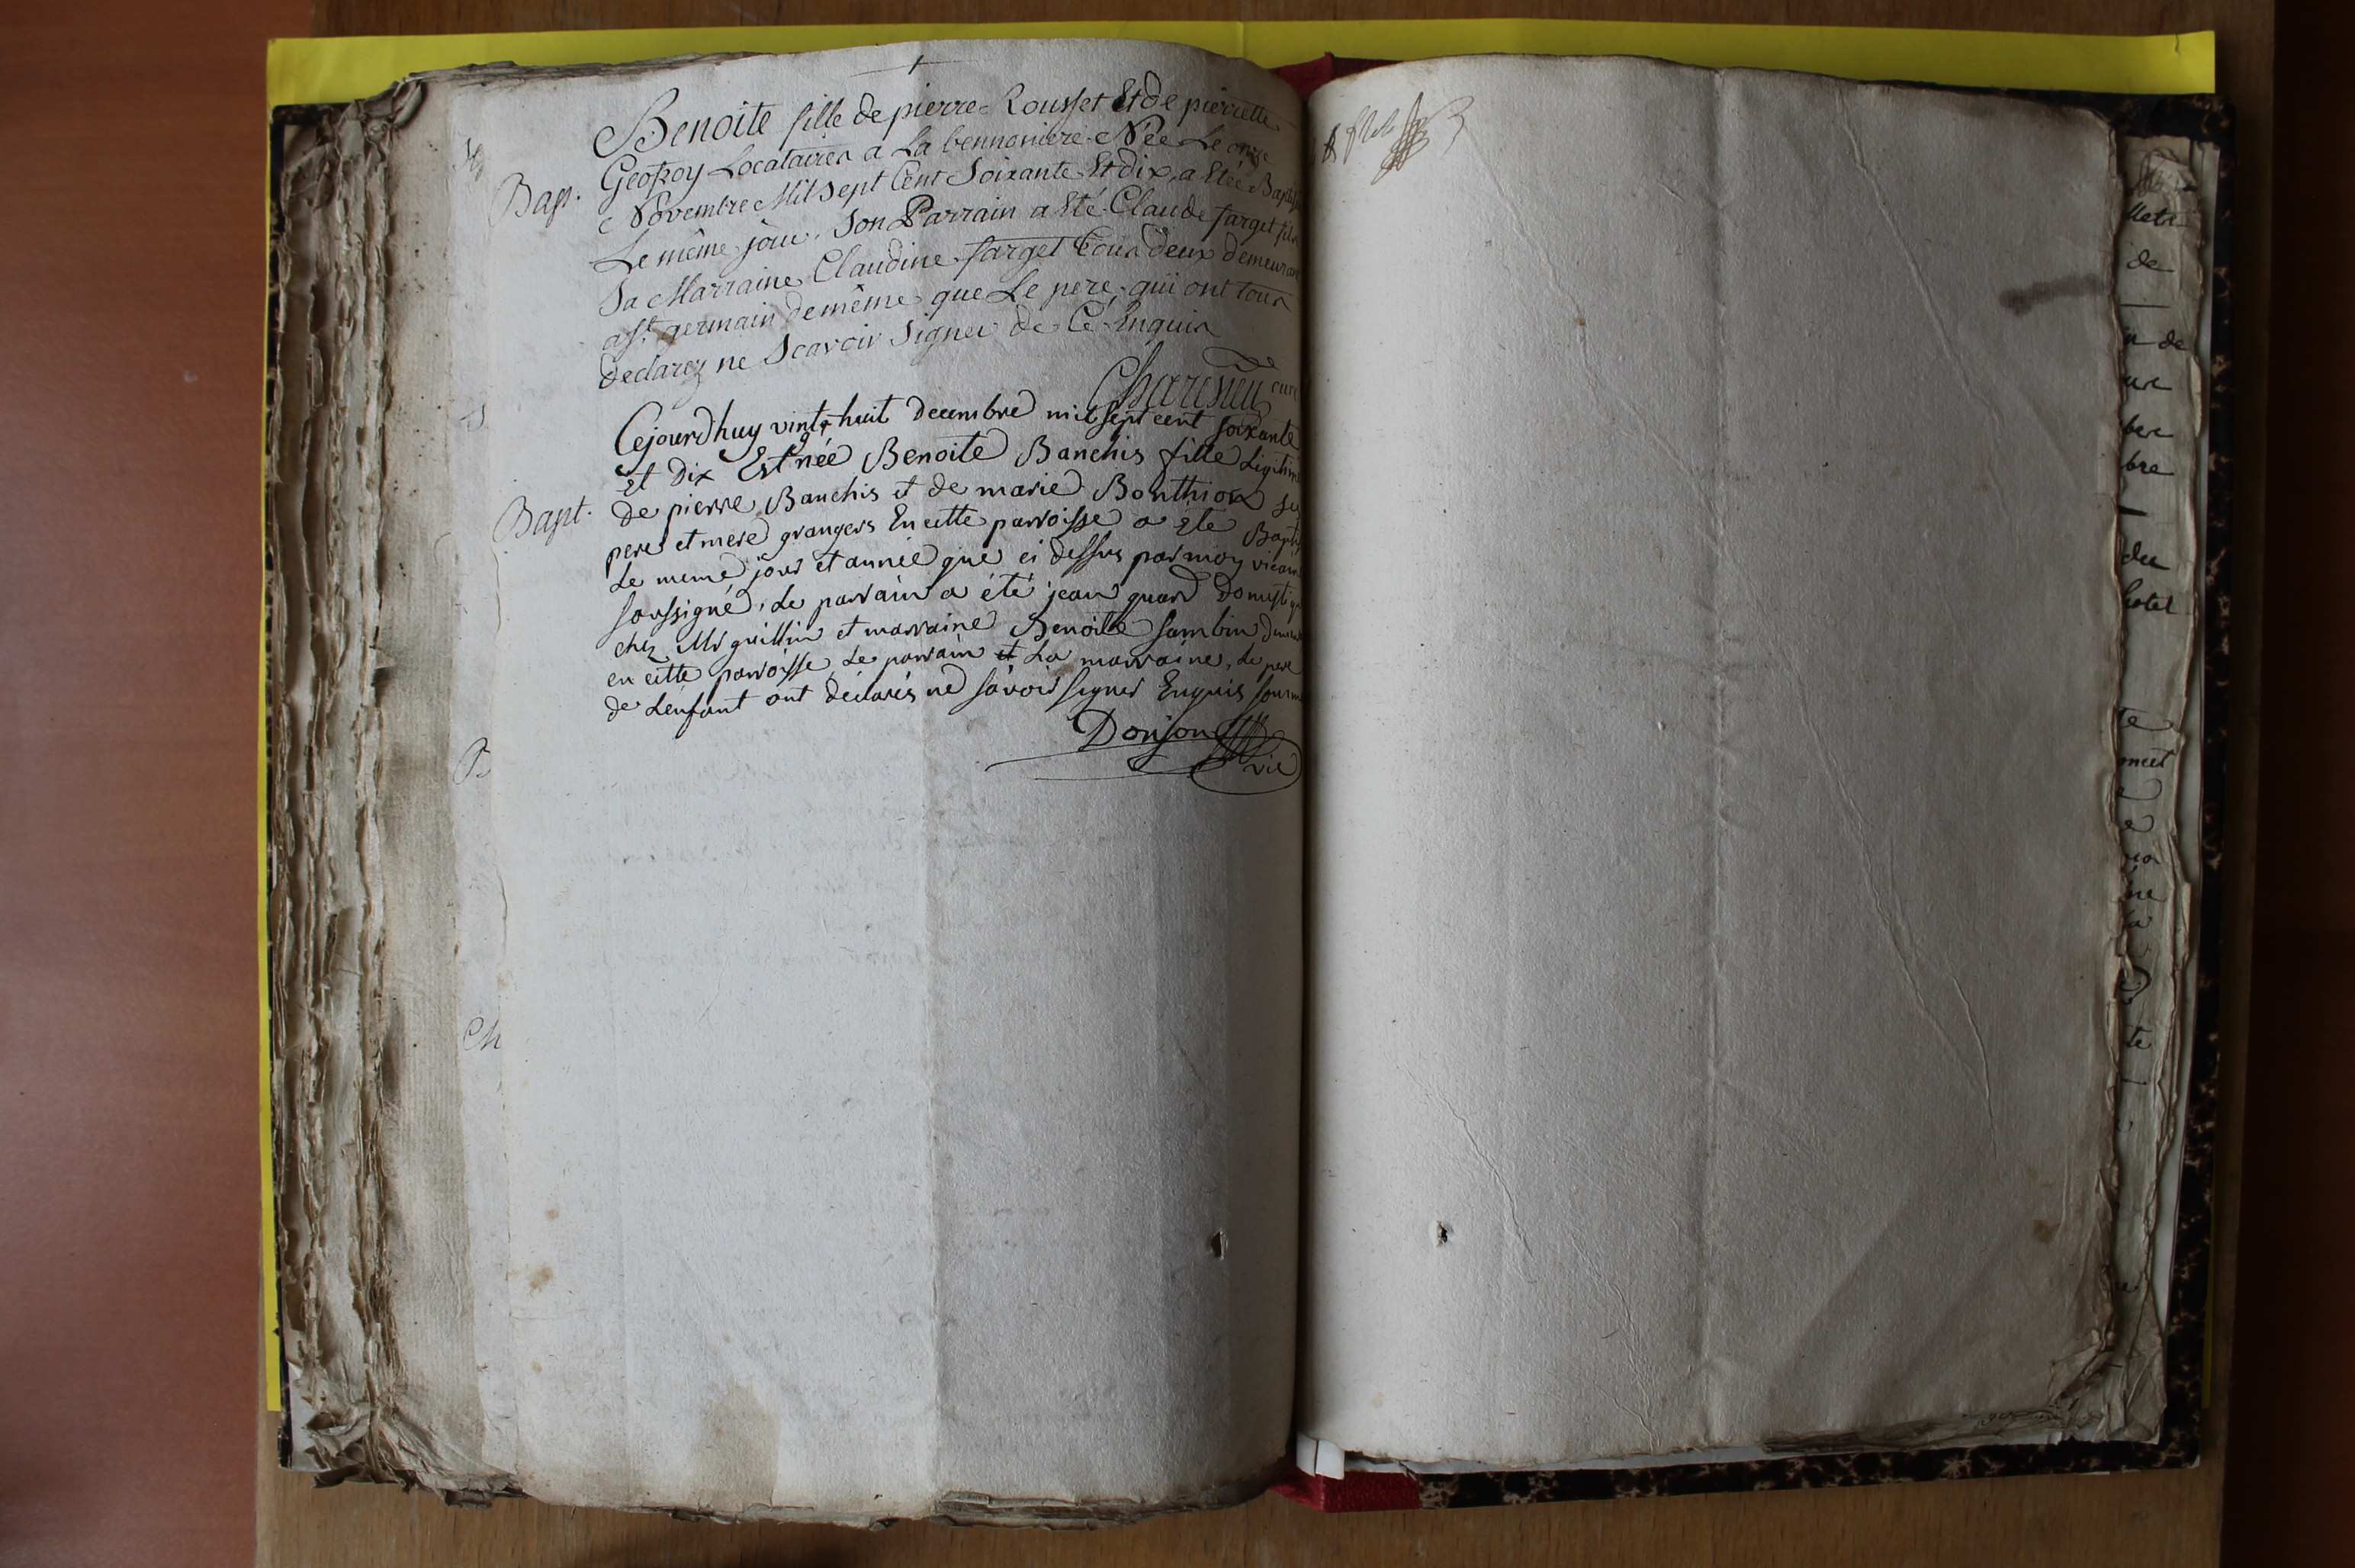 Benoite fille de pierre Rousset Et de pierrette
Bapt. Geofroy Locataires a La bennoniere Née Le onze
Novembre Mil Sept Cent Soixante Et dix, a Etée Bapt
Le même jour. Son Parrain a Eté Claude farget fils
Sa Marraine Claudine farget tous deux demeurans
a St. germain de même que Le pere, qui ont tous
declarez ne Scavoir Signer de Ce Enquis
curé
Cejourdhuy vint huit decembre mil sept cent soixante
et dix Est née Benoite Banchis fille Legitime
Bapt. de pierre Banchis et de marie Bonthion ses
pere et mere grangers En cette parroisse a ete Bapt
Le meme jour et année que ci dessus par moy vicaire
soussigné, Le parrain a été jean guard Domestique
chez Mr guillin et marraine Benoite sambin
en cette parroisse, Le parrain et La marraine, Le pere
de L'enfant ont déclarés ne sávoir signer Enquis
Donjon
vic
Ch
de
de
bre
du
te
ne
te